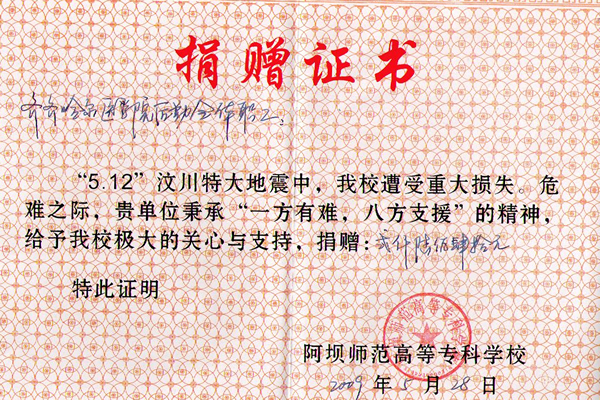 捐赠证书
齐齐哈尔医学院后勤全体职工：
“5.12”汶川特大地震中，我校遭受重大损失。危
难之际，贵单位秉承“一方有难，八方支援”的精神，
给予我校极大的关心与支持，捐赠：贰仟陆佰肆拾元
特此证明
阿坝师范高等专科学校
2009年5月28日